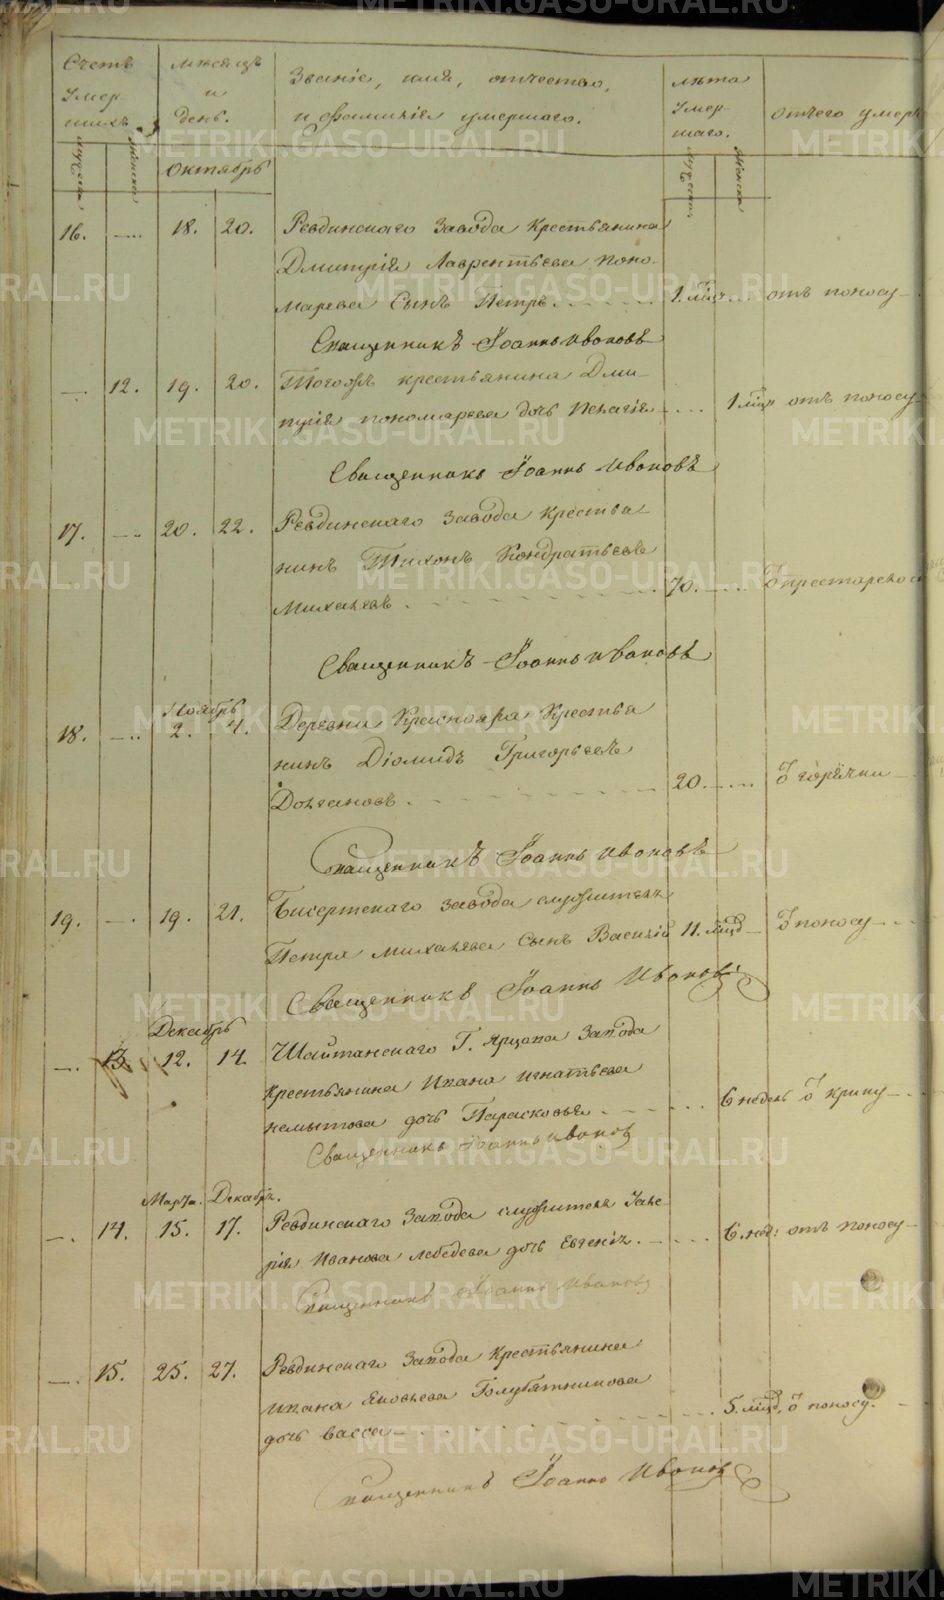 Счетъ умершихъ.
мѣсяцъ и день.
Званіе, имя, отчество, и фамилія умершаго.
лѣта умершаго.
отчего умеръ
мужеска женска
Октябрь
мужеска женска
16. — 18. 20. Ревдинскаго завода крестьянина
Дмитрія Лаврентьева Поно-
марева сынъ Петръ. 1. мѣс. отъ поносу
Священникъ Іоаннъ Ивановъ
— 12. 19. 20. Тогоожъ крестьянина Дми-
трія пономарева дочь Пелагія 1 мѣс. отъ поносу
Священникъ Іоаннъ Ивановъ
17. — 20. 22. Ревдинскаго завода крестья-
нинъ Тихонъ Кондратьевъ
Михалевъ. 70. — Ѿ престарелос
Священникъ Іоаннъ Ивановъ
Ноябрь
18. — 2. 4. Деревни Краснояра Крестья
нинъ Діомидъ Григорьевъ
Долгановъ. 20. — Ѿ горячки
Священникъ Іоаннъ Ивановъ
19. — 19. 21. Бисертскаго завода служителя
Петра михалева сынъ Василій 11. мѣс. Ѿ поносу
Священникъ Іоаннъ Ивановъ
Декабрь
— 13. 12. 14. Шайтанскаго Г. Ярцова завода
крестьянина Ивана Игнатьева
немытова дочь Парасковья. 6 недель Ѿ крику
Священникъ Іоаннъ Ивановъ
Марта. Декабр.
— 14. 15. 17. Ревдинскаго завода служителя
рія Иванова лебедева дочь Евгенія. 6. нед: отъ поносу
Священникъ Іоаннъ Ивановъ
— 15. 25. 27. Ревдинскаго завода крестьянина
Ивана Яковлева Голубятникова
дочь васса 5. мѣс. Ѿ поносу.
Священникъ Іоаннъ Ивановъ
METRIKI.GASO-URAL.RU